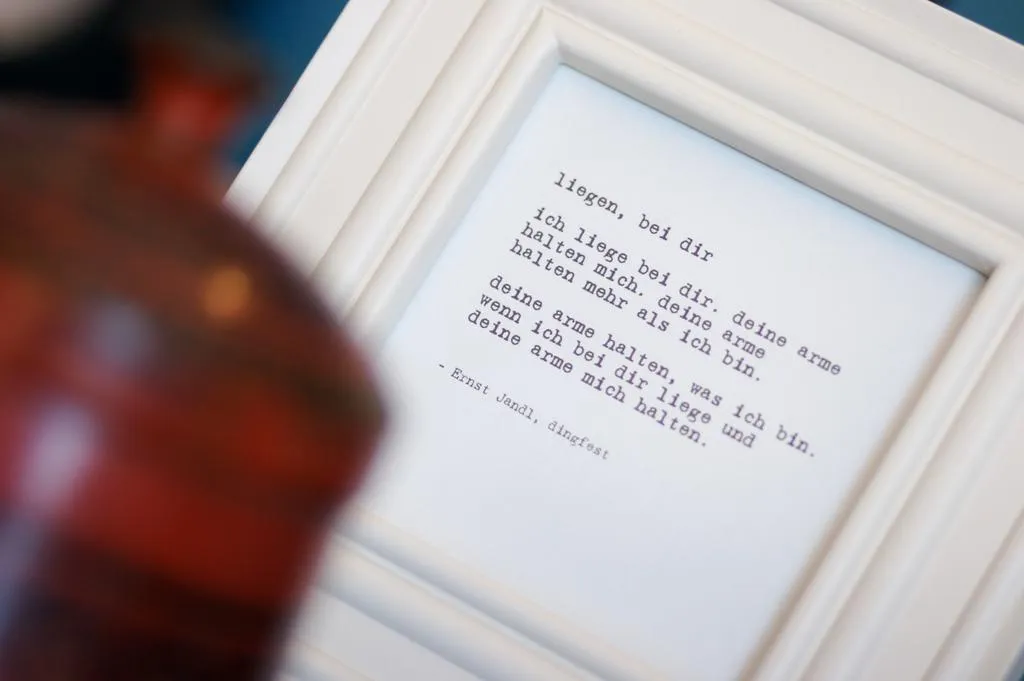 liegen, bei dir
ich liege bei dir. deine arme
halten mich. deine arme
halten mehr als ich bin.
deine arme halten, was ich bin.
wenn ich bei dir liege und
deine arme mich halten.
- Ernst Jandl, dingfest